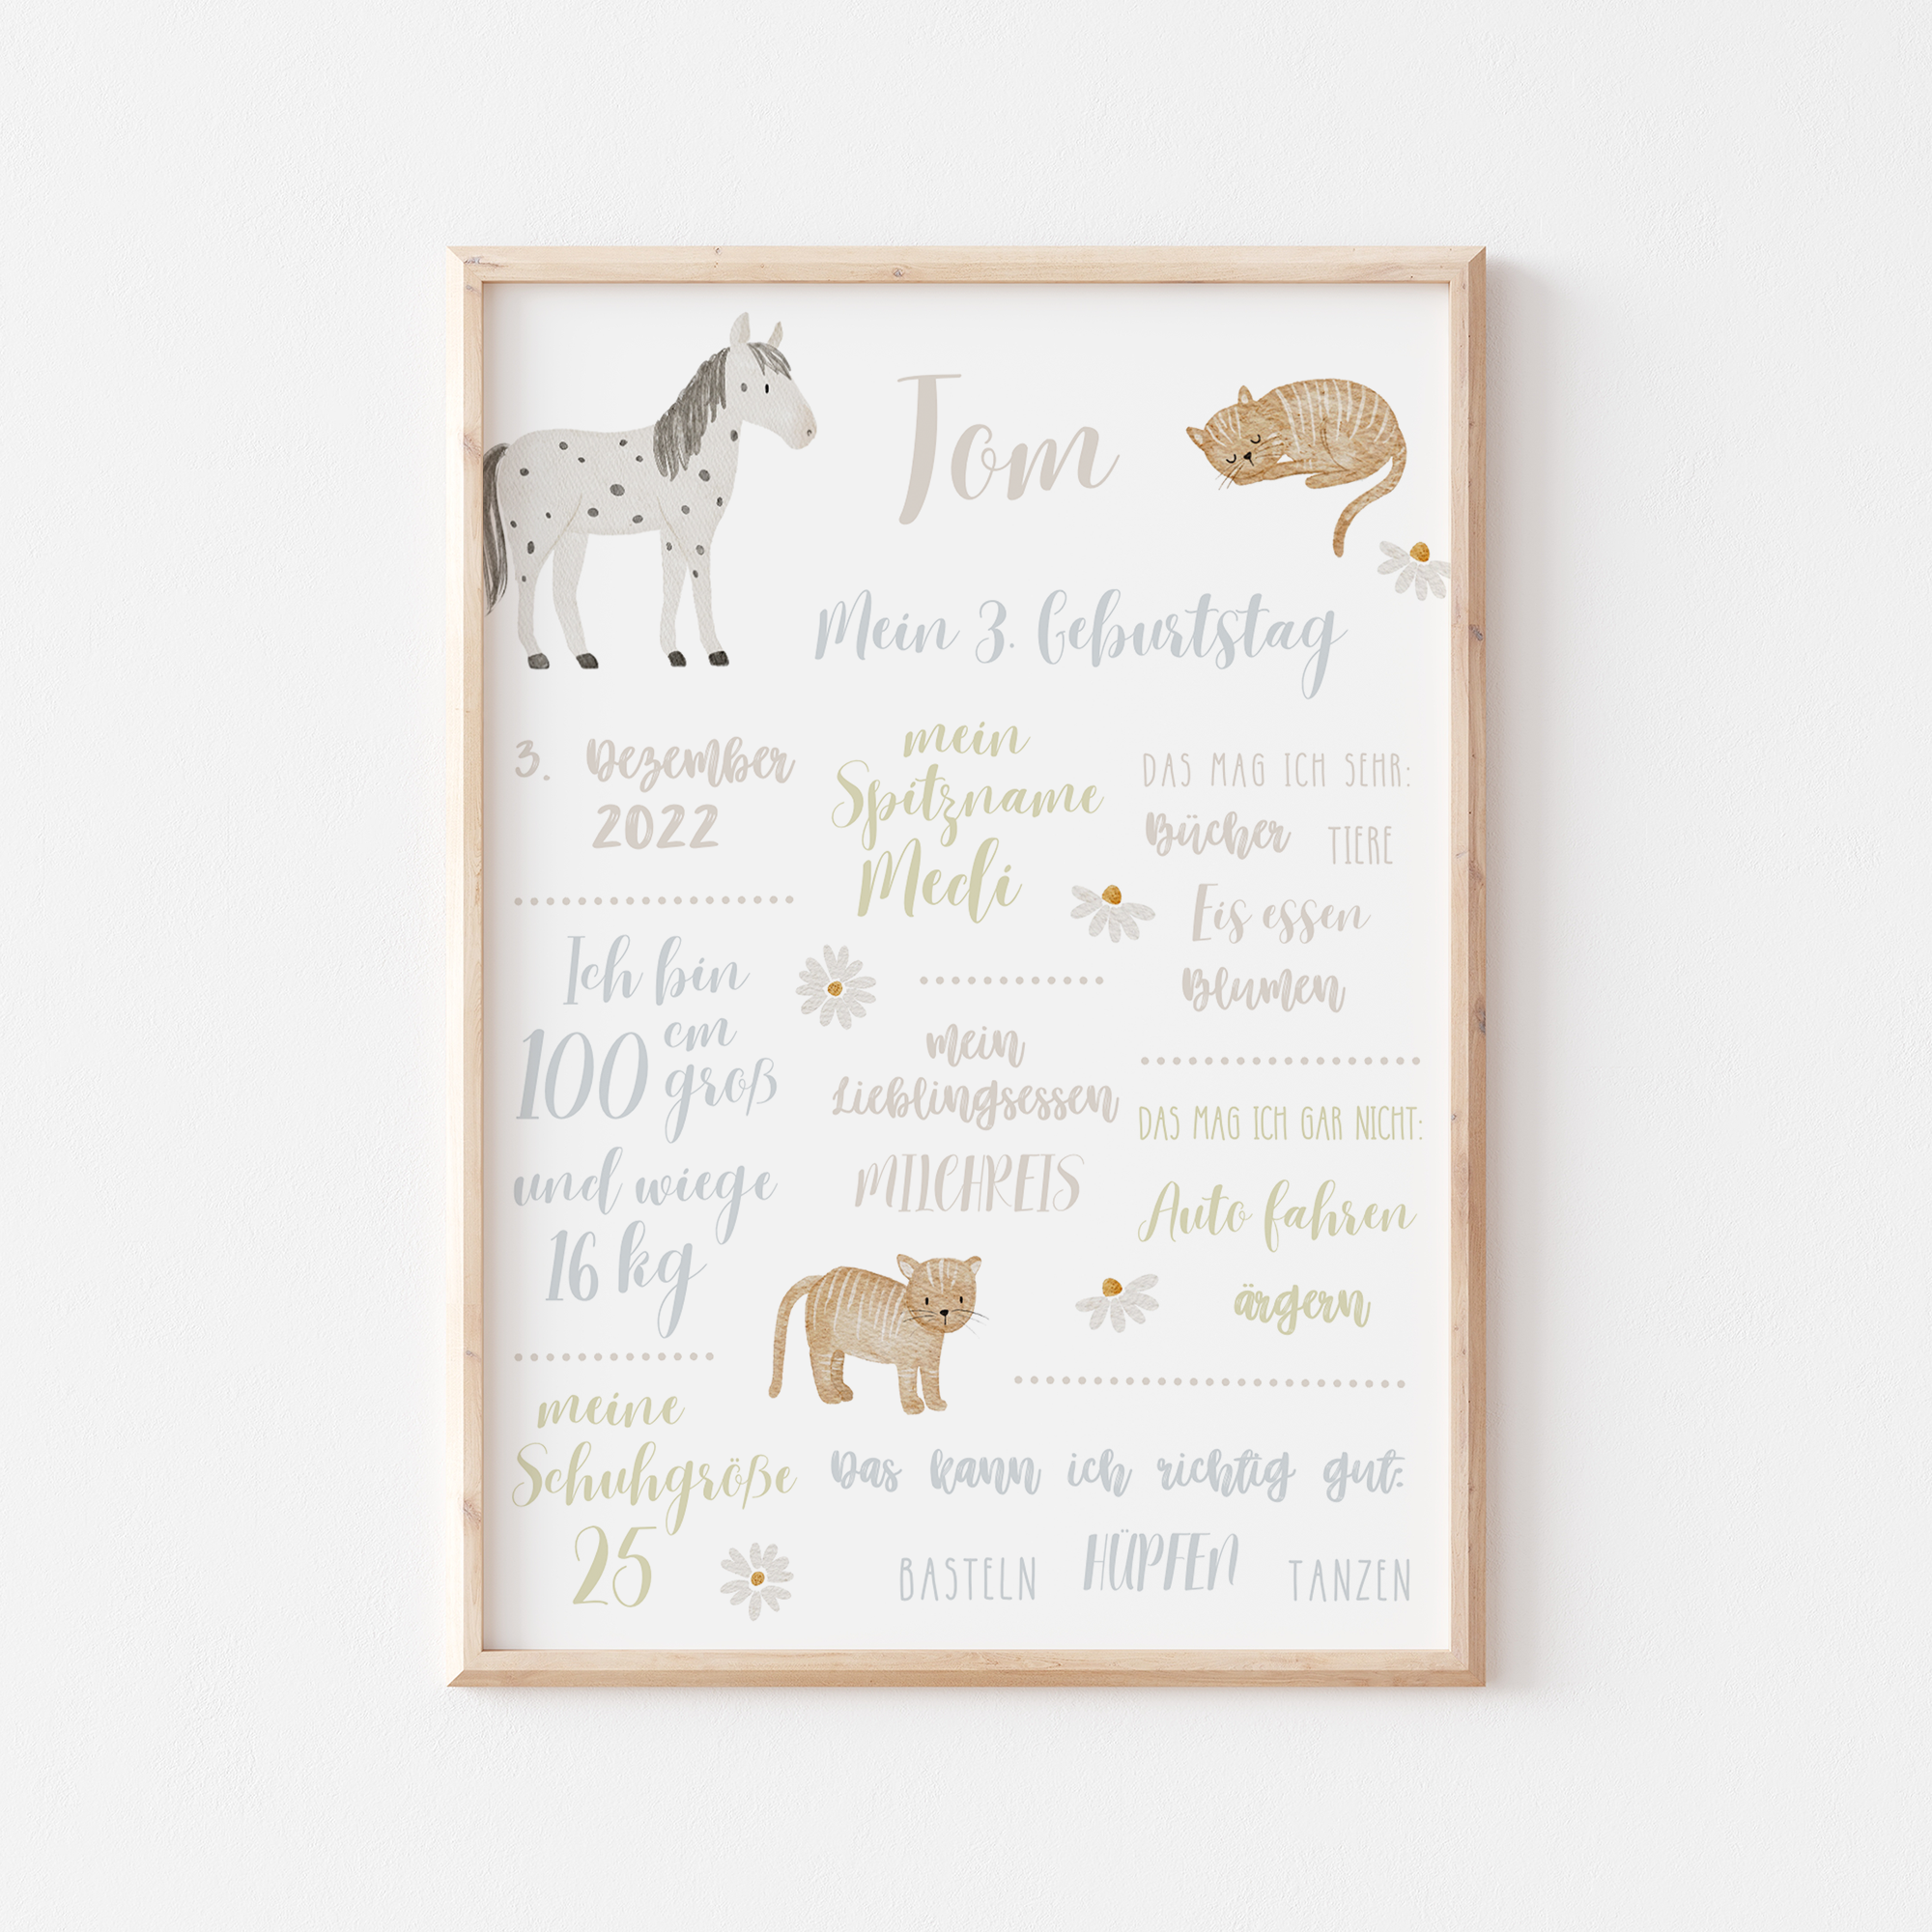 Tom
Mein 3. Geburtstag
3. Dezember
2022
Ich bin
100 cm
groß
und wiege
16 kg
meine
Schuhgröße
25
mein
Spitzname
Medi
mein
Lieblingsessen
MILCHREIS
DAS MAG ICH SEHR:
Bücher TIERE
Eis essen
Blumen
DAS MAG ICH GAR NICHT:
Auto fahren
ärgern
Das kann ich richtig gut:
BASTELN HÜPFEN TANZEN